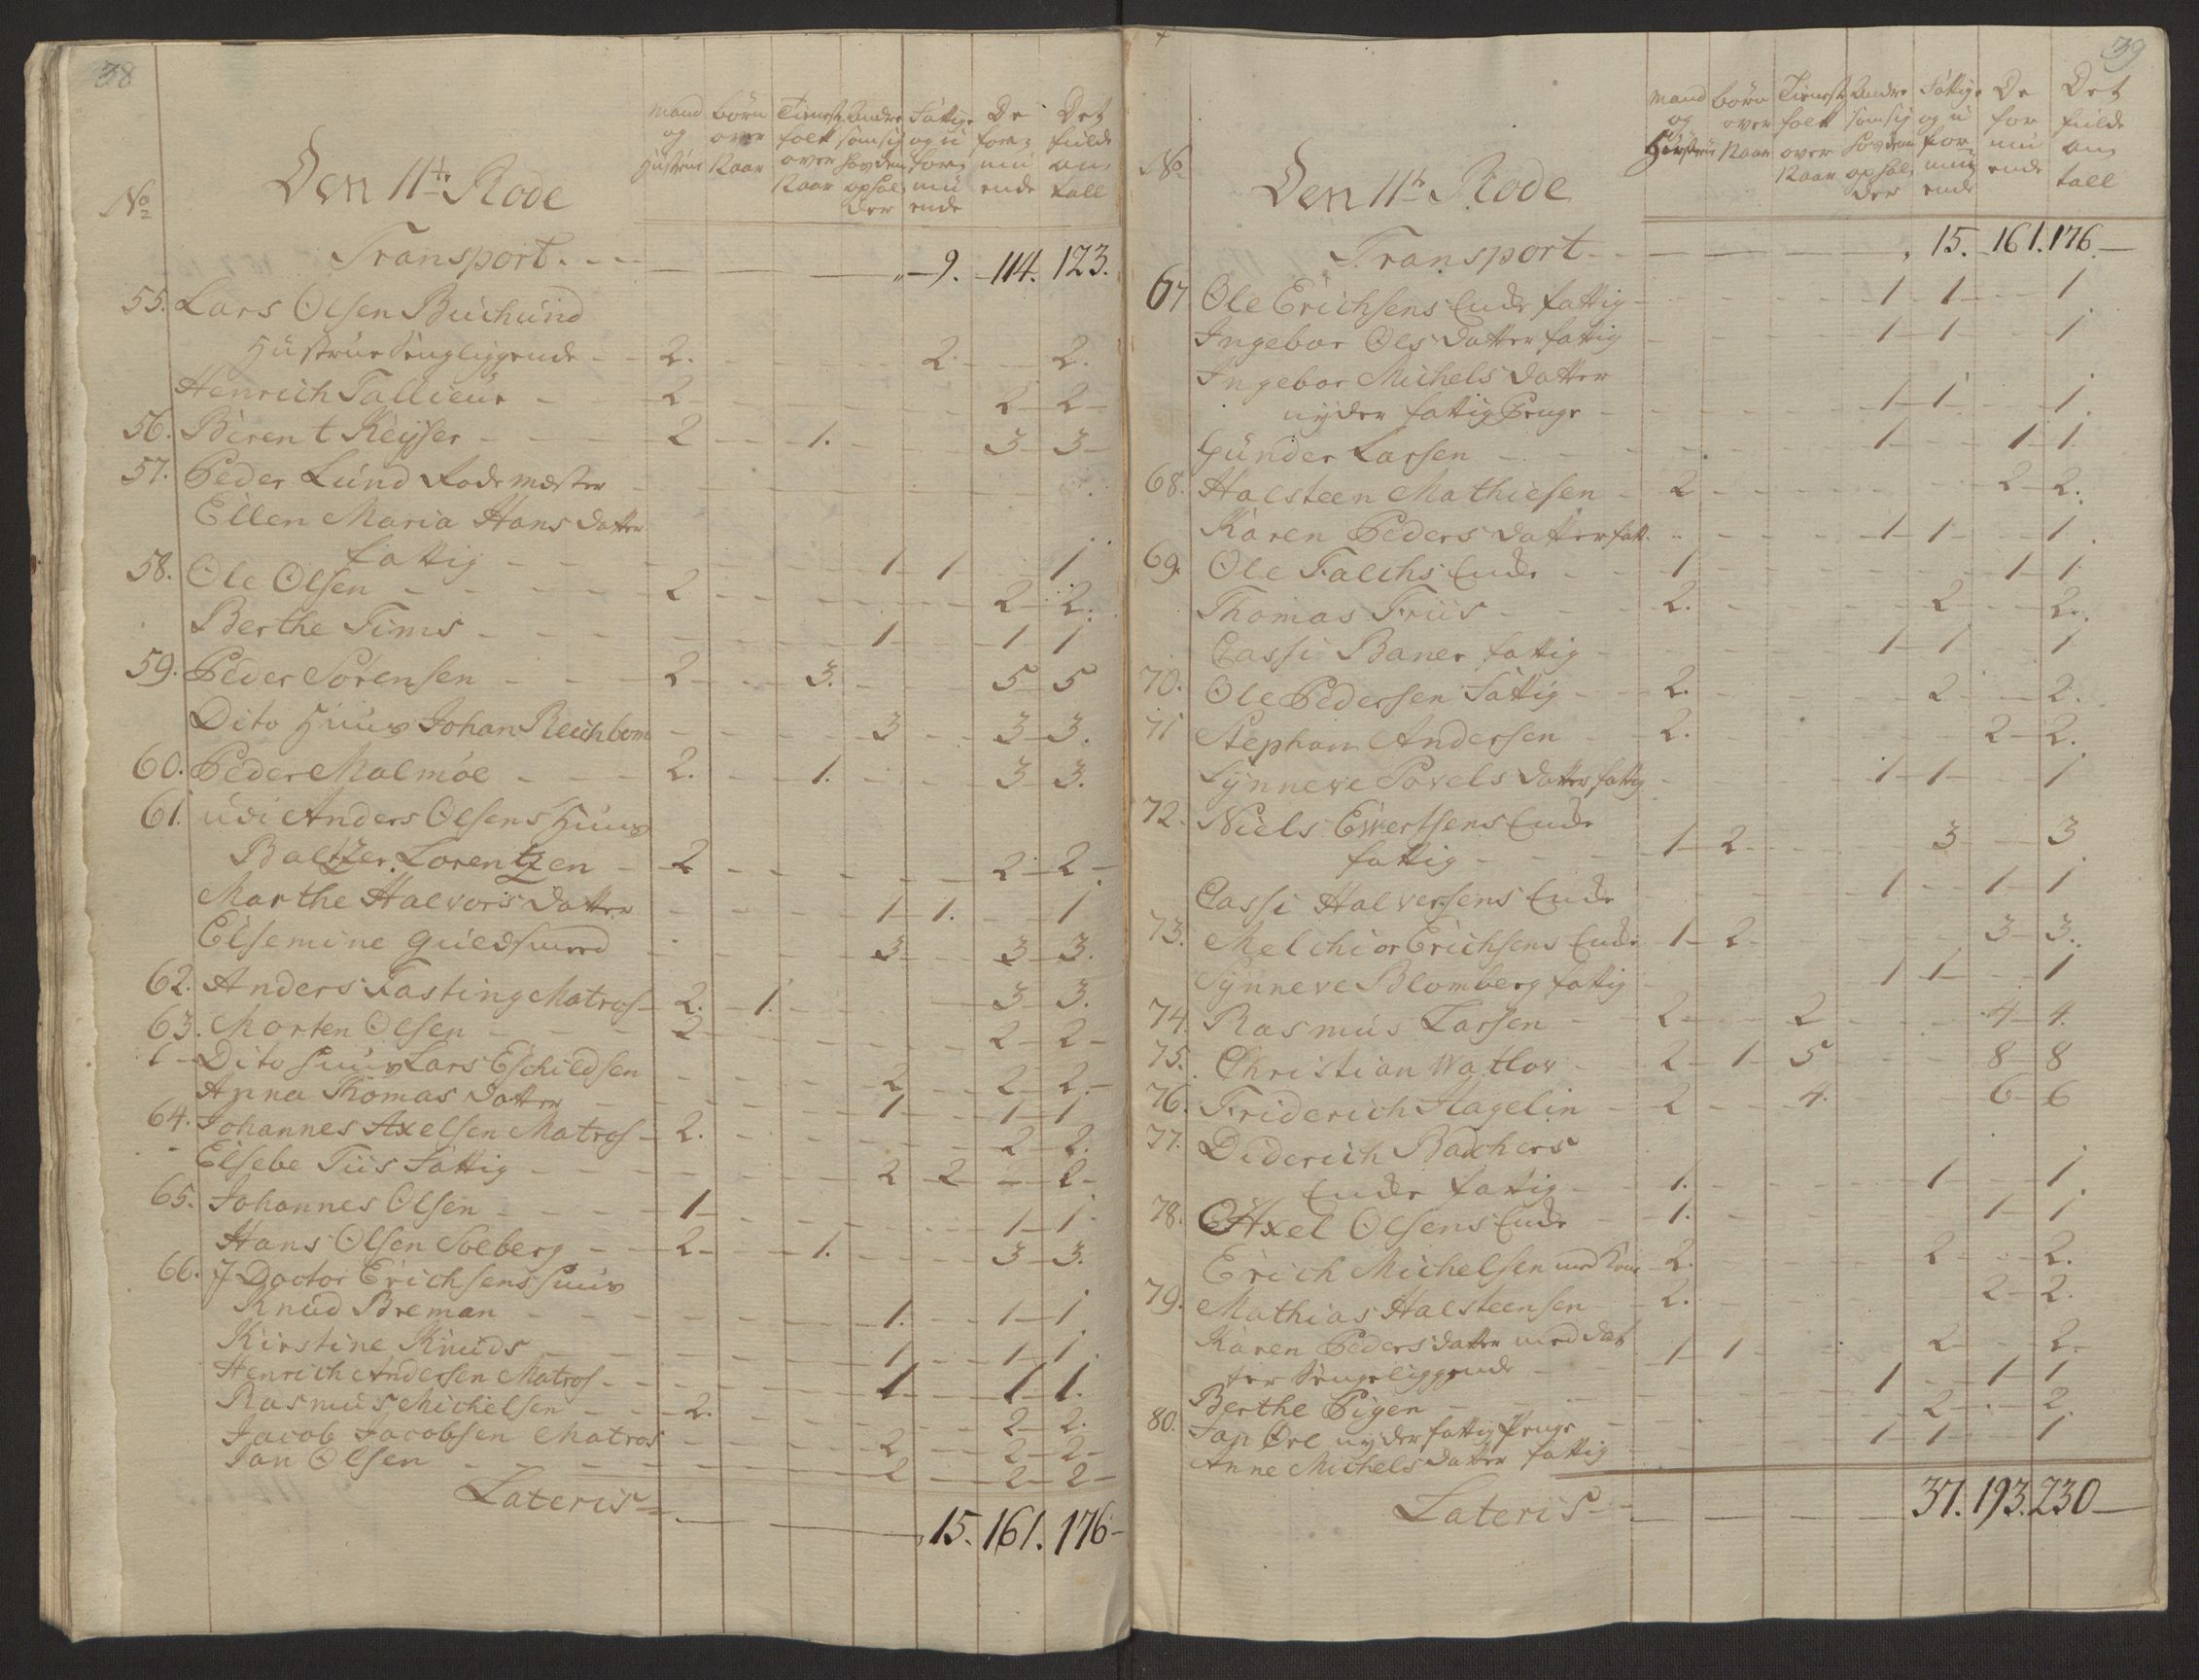 38
No
Den 11te Rode
Mand og Hustrue
Børn over 12 aar
Tieneste folk over 12 aar
Andre som sig hos dem ophol der
Fattige og u for mu ende
De for mu ende
Det fulde an tall
Transport. - - - 9. 114. 123.
55. Lars Olsen Buchund
Hustrue Sengliggende - - 2. 2. 2.
Henrich Tallieur - - 2 2 2
56. Berent Keyser - - - 2 1. 3 3
57. Peder Lund Rodemæster
Ellen Maria Hans datter
fattig - - 1 1 1
58. Ole Olsen - - - 2 2 2.
Berthe Tims - - - 1 1 1
59. Peder Sørensen - - - 2 3. 5 5
Dito Huus Johan Reichbom 3 3 3.
60. Peder Malmøe - - - 2. 1. 3 3.
61. udi Anders Olsens Huus
Baltzer Lorentzen - 2 2 2
Marthe Halvors datter 1 1. 1
Elsemine Guldsmed 3 3 3.
62. Anders Fasting Matros 2. 1. 3 3.
63. Morten Olsen - - - 2 2 2
Dito Huus Lars Eschildsen 2 2 2.
Anna Thomas datter 1 1 1
64. Johannes Axelsen Matros 2. 2 2.
Elsebe Tiis Fattig - - - 2 2 2
65. Johannes Olsen - - - 1 1 1
Hans Olsen Soeberg - - 2 1. 3 3.
66. I Doctor Erichsens Huus
Knud Breman - - - 1. 1 1
Kirstine Knuds - - - 1 1 1
Henrich Andersen Matros 1 1 1.
Rasmus Michelsen - - 2. 2 2.
Jacob Jacobsen Matros 2 2 2
Jan Olsen - - - 2 2 2
Lateris 15. 161. 176
39
No
Den 11te Rode
Mand og Hustrue
Børn over 12 aar
Tieneste folk over 12 aar
Andre som sig hos dem ophol der
Fattige og u for mu ende
De for mu ende
Det fulde an tall
Transport - - 15. 161. 176
67 Ole Erichsens Enke fattig 1 1 1
Ingebor Ols datter fattig 1 1 1
Ingebor Michels datter
nyder fattig Penge - 1 1 1.
Gunder Larsen - - 1 1 1.
68. Halsteen Mathiesen - 2 2 2.
Karen Peders datter fatt. 1 1 1
69. Ole Falchs Enke - - 1 1 1
Thomas Friis - - - 2. 2 2.
Cassi Baner fattig - 1 1 1
70. Ole Pedersen Fattig - 2. 2 2.
71 Stephan Andersen - 2. 2 2.
Synneve Povels datter fattig 1 1 1
72. Niels Ewertsens Enke
fattig - - - 1 2 3 3
Cassi Halversens Enke 1 1 1
73. Melchior Erichsens Enke 1 2 3 3.
Synneve Blomberg fattig 1 1 1
74. Rasmus Larsen - 2 2 4 4.
75. Christian Watlov - 2 1 5 8 8
76. Friderich Hagelin - 2 4. 6 6
77. Diderich Bachers
Enke fattig - 1. 1 1
78. Axel Olsens Enke - 1. 1 1
Erich Michelsen med Kone 2. 2 2.
79. Mathias Halsteensen 2. 2 2.
Karen Peders datter med dat
ter Sengeliggende - 1 1 2 2
Berthe Pigen - - 1 1 1
80. Jap Øre nyder fattig Penge 2 2.
Anne Michels datter fattig 1 1 1
Lateris - - 37. 193. 230